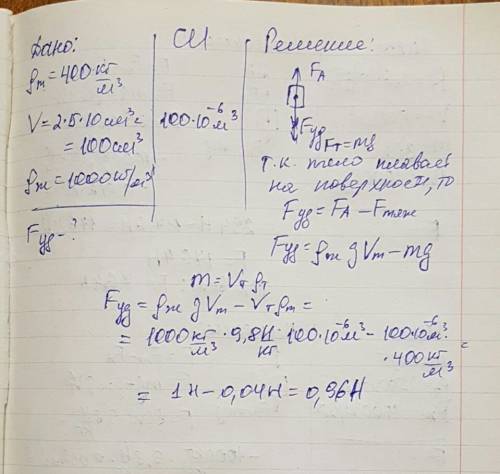 Дано:
ρт = 400 кг/м³
V = 2·5·10 см³ =
= 100 см³
ρж = 1000 кг/м³
Fуд - ?
СИ
100·10⁻⁶ м³
Решение:
FA
Fуд
FT = mg
т.к. тело плавает
на поверхности, то
Fуд = FA − Fтяж
Fуд = ρж g Vт − mg
m = Vт ρт
Fуд = ρж g Vт − Vт ρт =
= 1000 кг/м³ · 9,8 Н/кг 100·10⁻⁶ м³ − 100·10⁻⁶ м³ ·
· 400 кг/м³ =
= 1Н − 0,04Н = 0,96Н